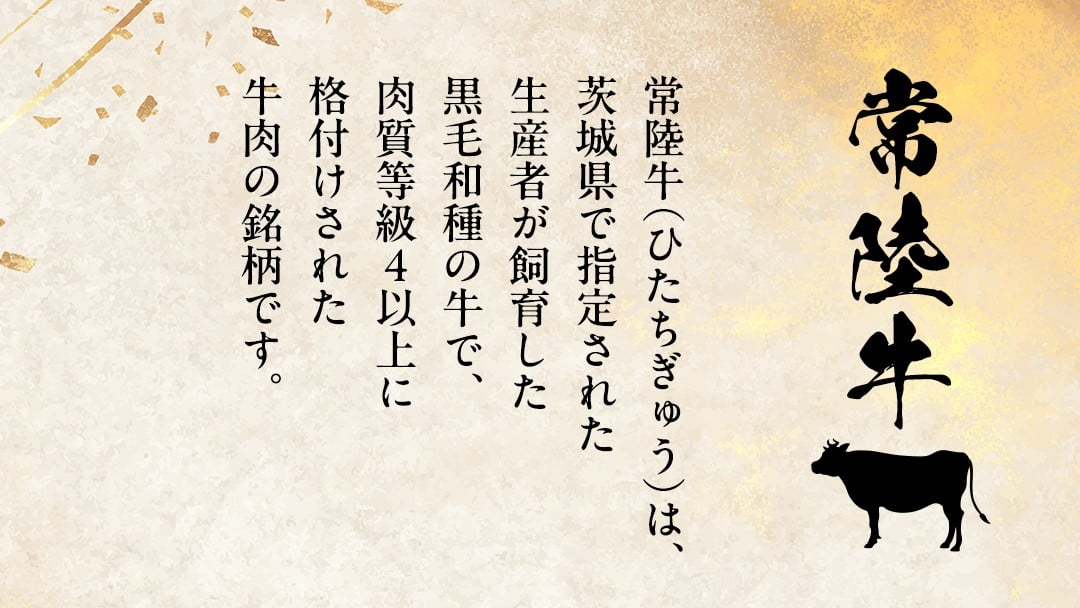 常陸牛
常陸牛(ひたちぎゅう)は、
茨城県で指定された
生産者が飼育した
黒毛和種の牛で、
肉質等級4以上に
格付けされた
牛肉の銘柄です。